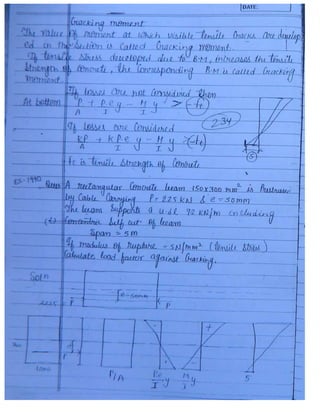 DATE:
Cracking moment
The value of moment at which visible tensile cracks are develop
ed in the section is called cracking moment.
If tensile stress developed due to B.M, increases the tensile
strength of concrete, the corresponding B.M is called Cracking
moment.
If losses are not considered then
At bottom P/A + P.e/I y - M/I y > -ft
If losses are considered
KP/A + K P.e/I y - M/I y > (-ft)
234
ft is tensile strength of concrete
ES-1990
Ques A rectangular concrete beam 150x300 mm² is Prestress
by cable carrying P = 225 kN & e = 50mm
The beam supports a udl 12 kN/m including
self wt of beam
Span = 5m
If modulus of rupture = 5N/mm² (tensile stress)
Calculate load factor against cracking.
Soln
e=50mm
P
P
P
P/A
P.e/I y
M/I y
+
5